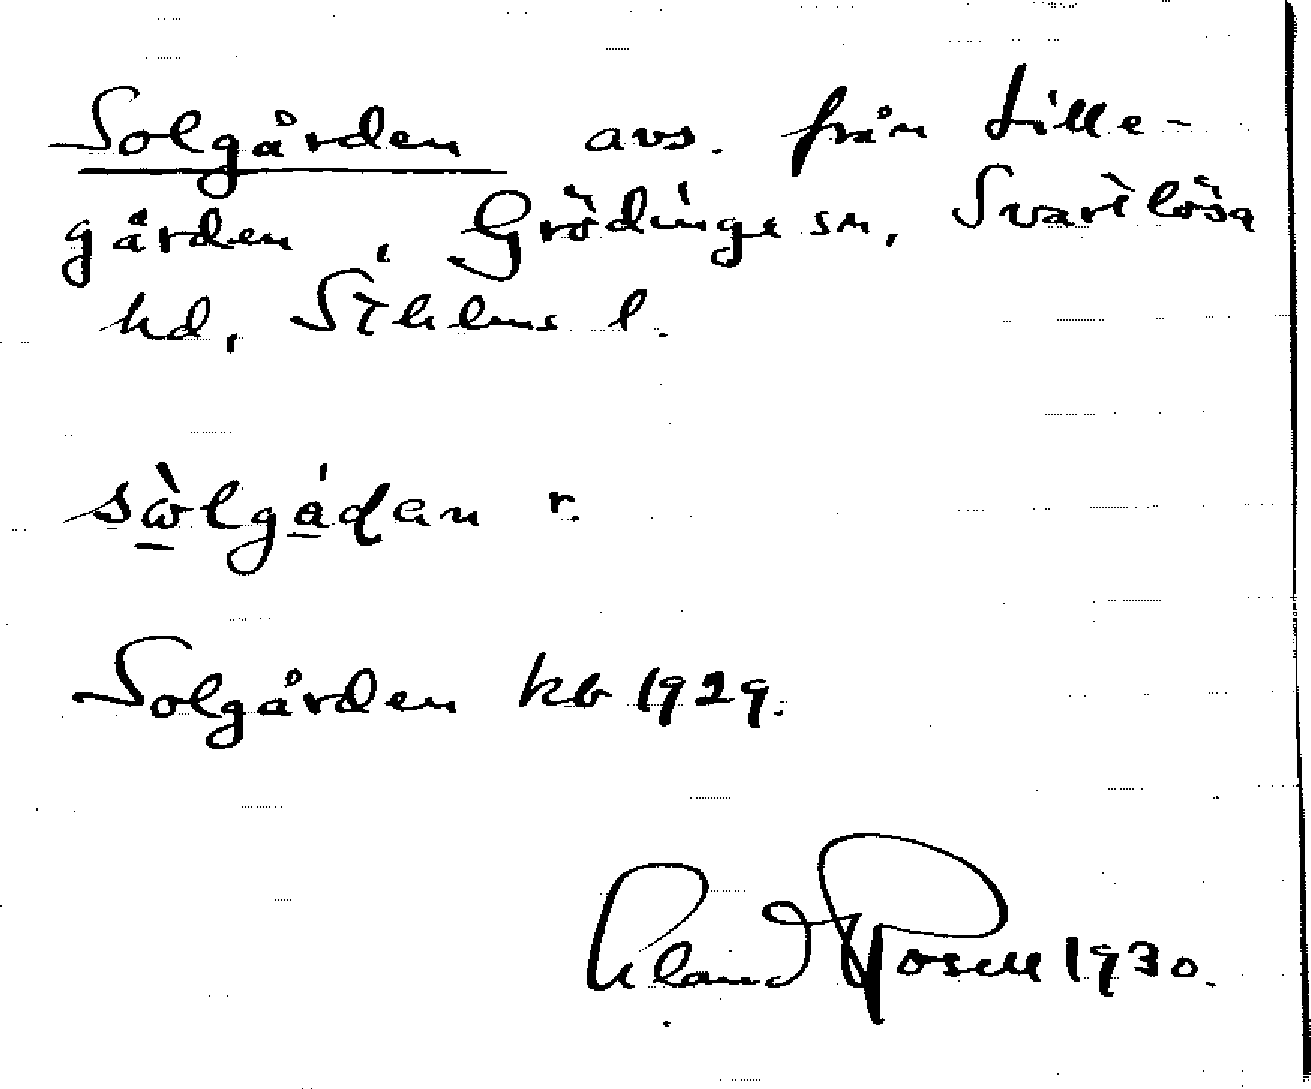 Solgården avs. från Lille-
gården, Grödinge sn, Svartlösa
hd, Sthlms l.
sὼlgádan r.
Solgården kb 1929.
Rosell 1930.